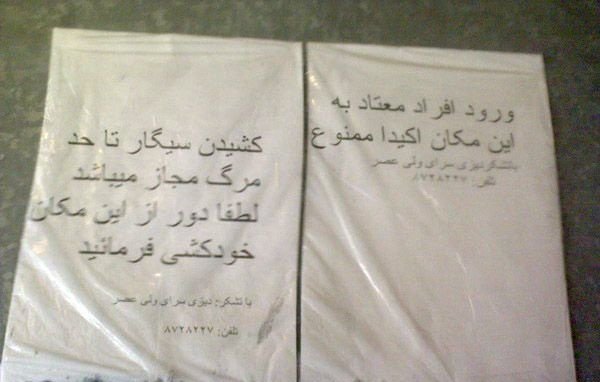 ورود افراد معتاد به
این مکان اکیدا ممنوع
باتشکردیزی سرای ولی عصر
تلفن: ۸۷۲۸۲۲۷
کشیدن سیگار تا حد
مرگ مجاز میباشد
لطفا دور از این مکان
خودکشی فرمائید
با تشکر: دیزی سرای ولی عصر
تلفن: ۸۷۲۸۲۲۷